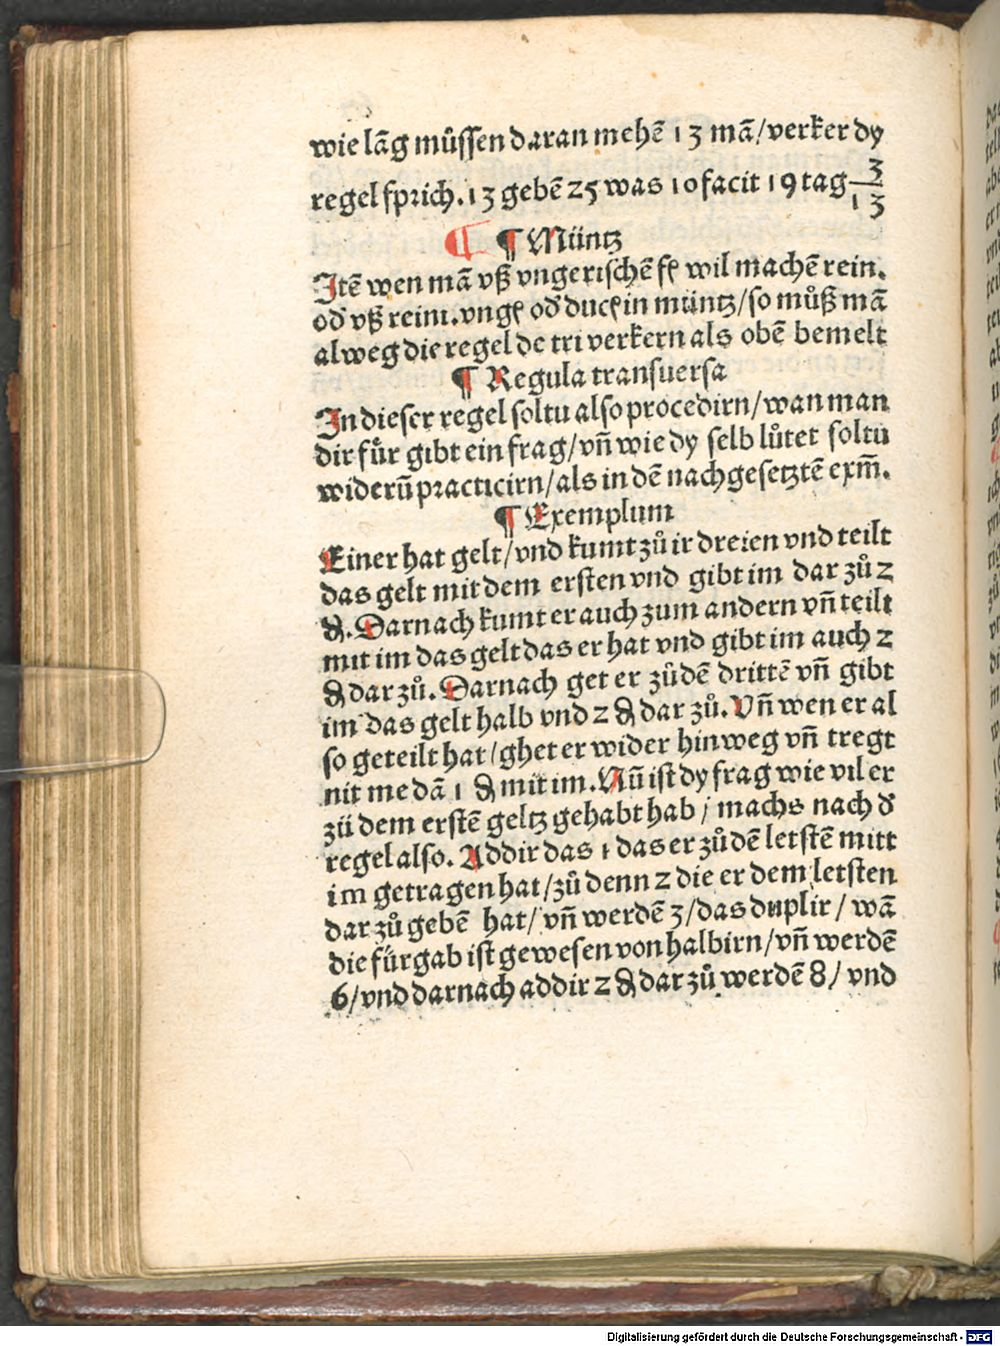 wie lãg můſſen daran mehẽ 13 mã/verker dy
regel ſprich.13 gebẽ 25 was 10 facit 19 tag 3/13
¶ ¶ Müntz
Itẽ wen mã vß vngeriſchẽ fl wil machẽ rein.
od vß reini.vng̃ od duc̃ in müntz/ſo můß mã
alweg die regel de tri verkern als obẽ bemelt
¶ Regula tranſuerſa
In dieſer regel ſoltu alſo procedirn/wan man
dir für gibt ein frag/vñ wie dy ſelb lůtet ſoltu
widerũ practicirn/als in dẽ nachgeſetztẽ exm̃.
¶ Exemplum
Einer hat gelt/vnd kumt zů ir dreien vnd teilt
das gelt mit dem erſten vnd gibt im dar zů 2
₰.Darnach kumt er auch zum andern vñ teilt
mit im das gelt das er hat vnd gibt im auch 2
₰ dar zů.Darnach get er zů dẽ drittẽ vñ gibt
im das gelt halb vnd 2 ₰ dar zů.Vñ wen er al
ſo geteilt hat/ghet er wider hinweg vñ tregt
nit me dã 1 ₰ mit im.Nũ iſt dy frag wie vil er
zü dem erſtẽ geltz gehabt hab/machs nach d
regel alſo.Addir das 1 das er zů dẽ letſtẽ mitt
im getragen hat/zů denn 2 die er dem letſten
dar zů gebẽ hat/vñ werdẽ 3/das duplir/wã
die fürgab iſt geweſen von halbirn/vñ werdẽ
6/vnd darnach addir 2 ₰ dar zů werdẽ 8/vnd
Digitalisierung gefördert durch die Deutsche Forschungsgemeinschaft - DFG